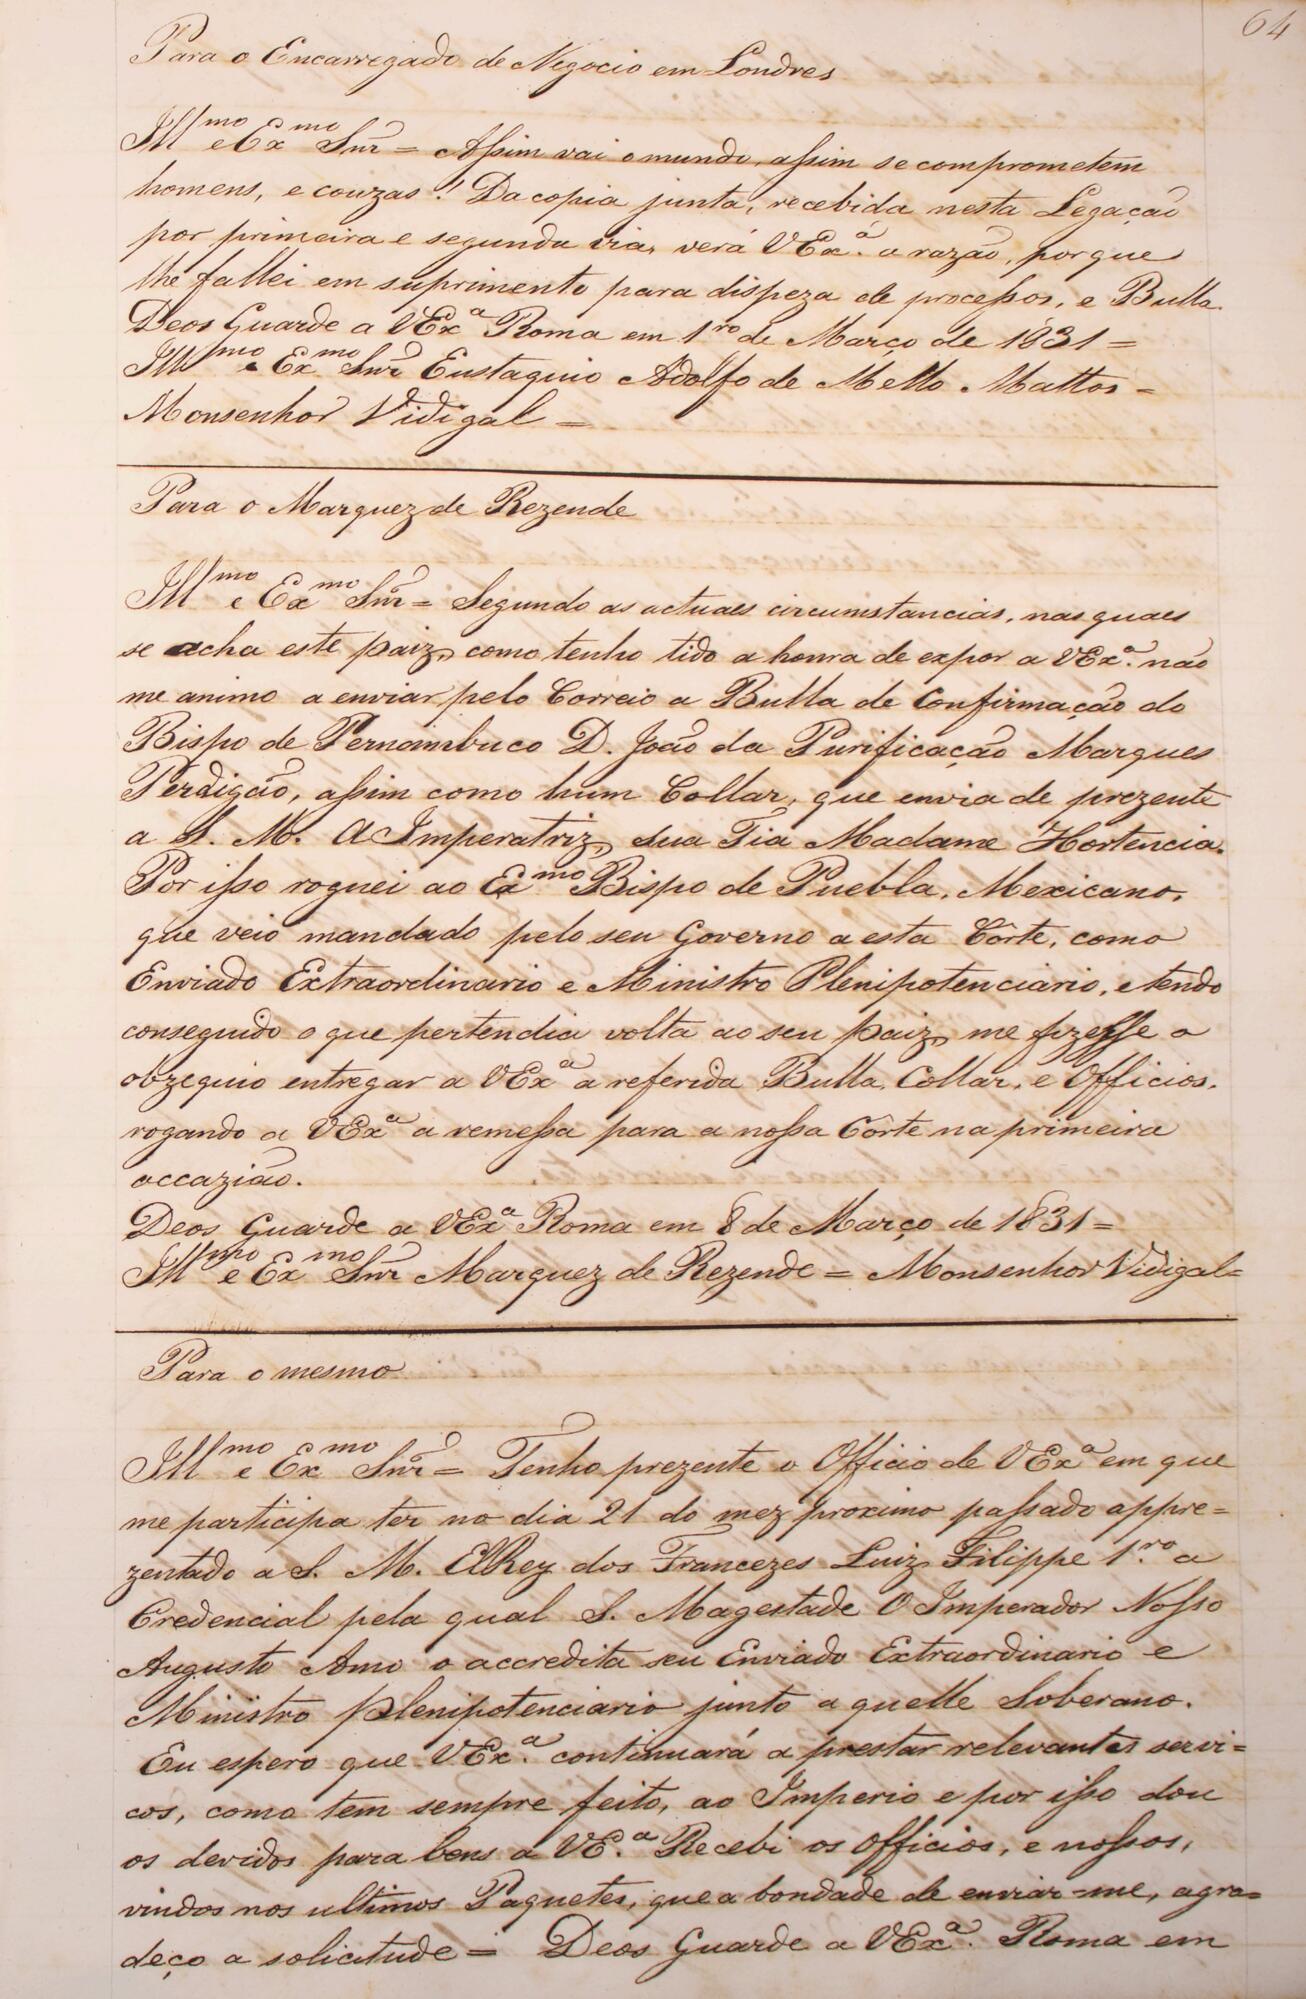 64
Para o Encarregado de Negocio em Londres
Ill^mo e Ex^mo Snr = Assim vai o mundo, assim se comprometem
homens, e couzas! Da copia junta, recebida nesta Legação
por primeira e segunda via, verá VEx^a. a razão, porque
lhe fallei em suprimento para dispeza de processos, e Bulla.
Deos Guarde a VEx^a Roma em 1^ro de Março de 1831 =
Ill^mo e Ex^mo Snr Eustaquio Adolfo de Mello Mattos =
Monsenhor Vidigal =
Para o Marquez de Rezende
Ill^mo e Ex^mo Snr = Segundo as actuaes circumstancias, nas quaes
se acha este paiz, como tenho tido a honra de expor a VEx^a. não
me animo a enviar pelo Correio a Bulla de Confirmação do
Bispo de Pernambuco D. João da Purificação Marques
Perdigão, assim como hum Collar, que envia de prezente
a S. M. A Imperatriz, sua Tia Madame Hortencia.
Por isso roguei ao Ex^mo Bispo de Puebla, Mexicano,
que veio mandado pelo seu Governo a esta Côrte, como
Enviado Extraordinario e Ministro Plenipotenciario, e tendo
conseguido o que pertendia volta ao seu paiz, me fizesse o
obzequio entregar a VEx^a a referida Bulla, Collar, e Officios,
rogando a VEx^a a remessa para a nossa Côrte na primeira
occazião.
Deos Guarde a VEx^a Roma em 8 de Março de 1831 =
Ill^mo e Ex^mo Snr Marquez de Rezende = Monsenhor Vidigal =
Para o mesmo
Ill^mo e Ex^mo Snr = Tenho prezente o Officio de VEx^a em que
me participa ter no dia 21 do mez proximo passado appre=
zentado a S. M. ElRey dos Francezes Luiz Filippe 1.^ro a
Credencial pela qual S. Magestade O Imperador Nosso
Augusto Amo o accredita seu Enviado Extraordinario e
Ministro Plenipotenciario junto a quelle Soberano.
Eu espero que VEx^a. continuará a prestar relevantes servi=
cos, como tem sempre feito, ao Imperio e por isso dou
os devidos para bens a VE.^a Recebi os Officios, e nossos,
vindos nos ultimos Paquetes, que a bondade de enviar-me, agra=
deço a solicitude = Deos Guarde a VEx^a. Roma em